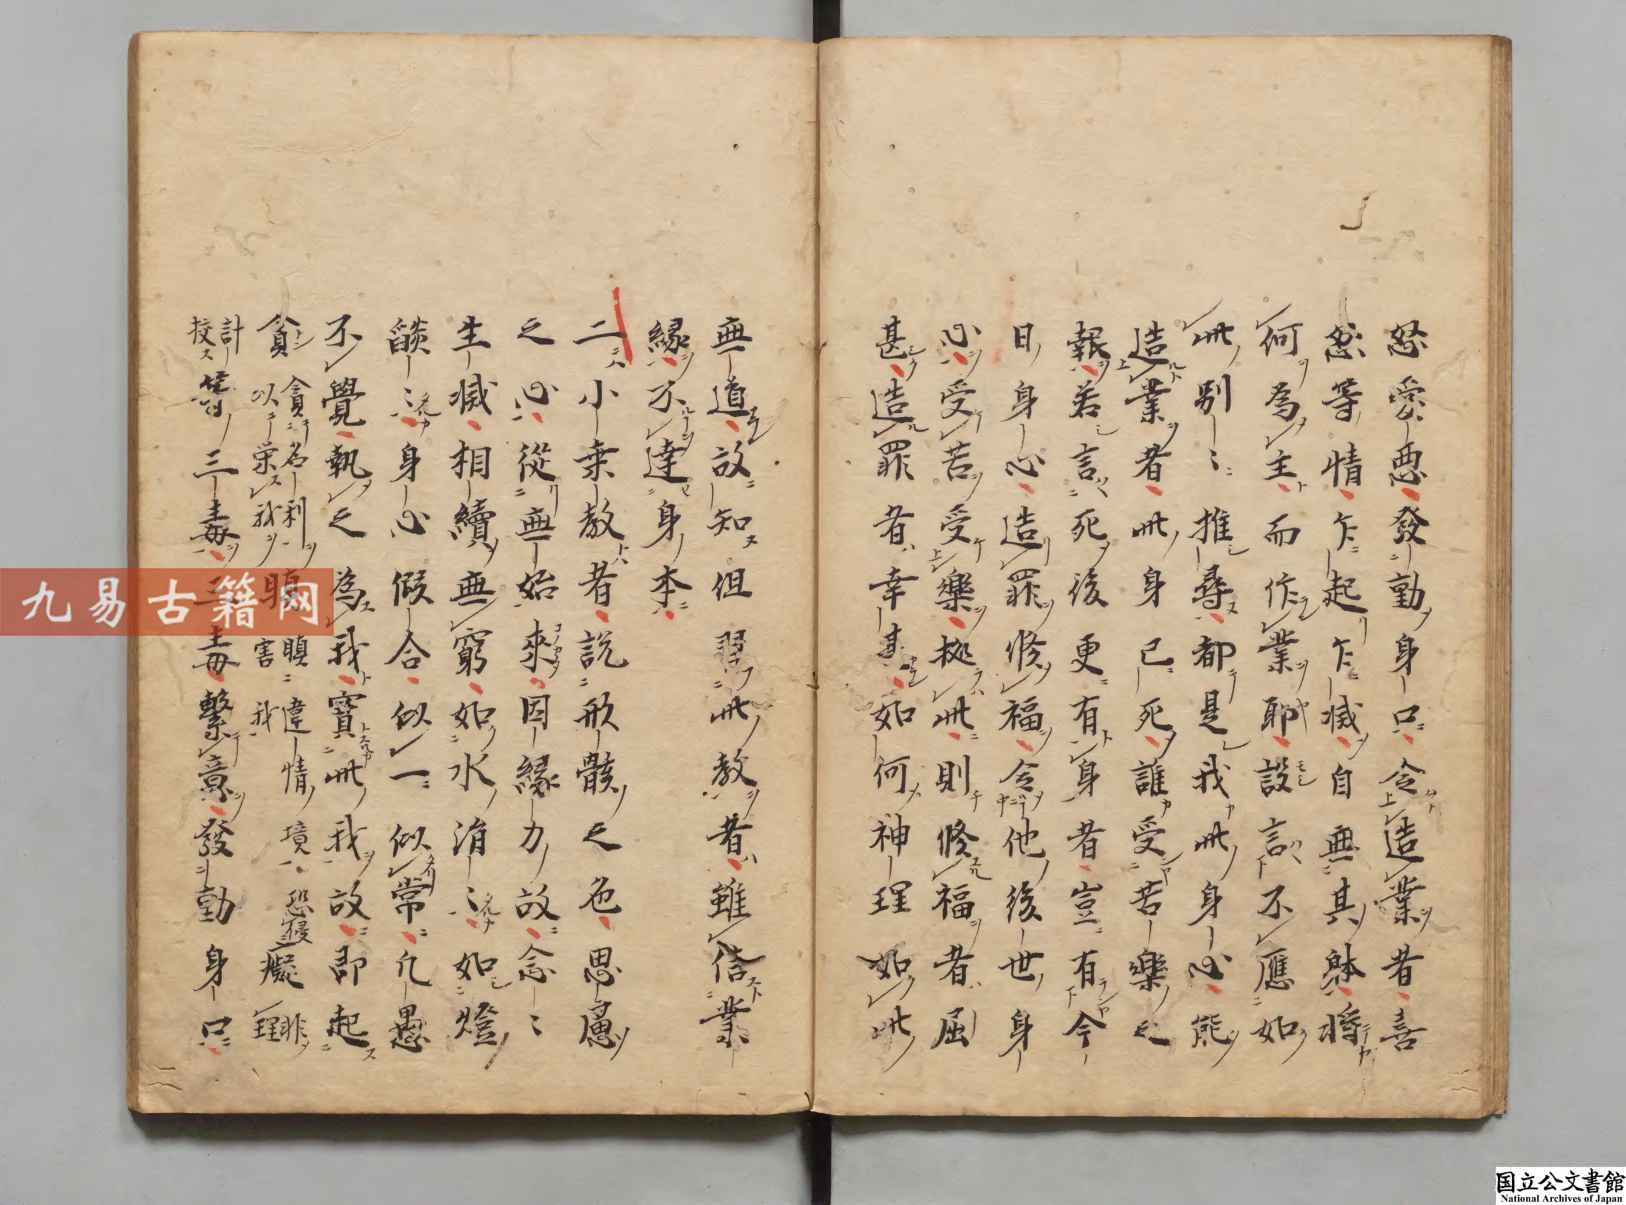 怒愛惡發動身口令造業者喜
怒等情乍起乍滅自無其躰將
何為主而作業耶設言不應如
此別〻推尋都是我此身心能
造業者此身已死誰受苦樂之
報若言死後更有身者豈有今
日身心造罪修福令他後世身
心受苦受樂據此則修福者屈
甚造罪者幸甚如何神理如此
無道故知但習此教者雖信業
緣不達身本
二小乗教者說形骸之色思慮
之心從無始來因緣力故念〻
生滅相續無窮如水涓〻如燈
焰〻身心假合似一似常凡愚
不覺執之為我寶此我故即起
貪貪名利以榮我瞋瞋違情境恐侵害我癡非理
計挍等三毒三毒擊意發動身口
九易古籍网
国立公文書館
National Archives of Japan